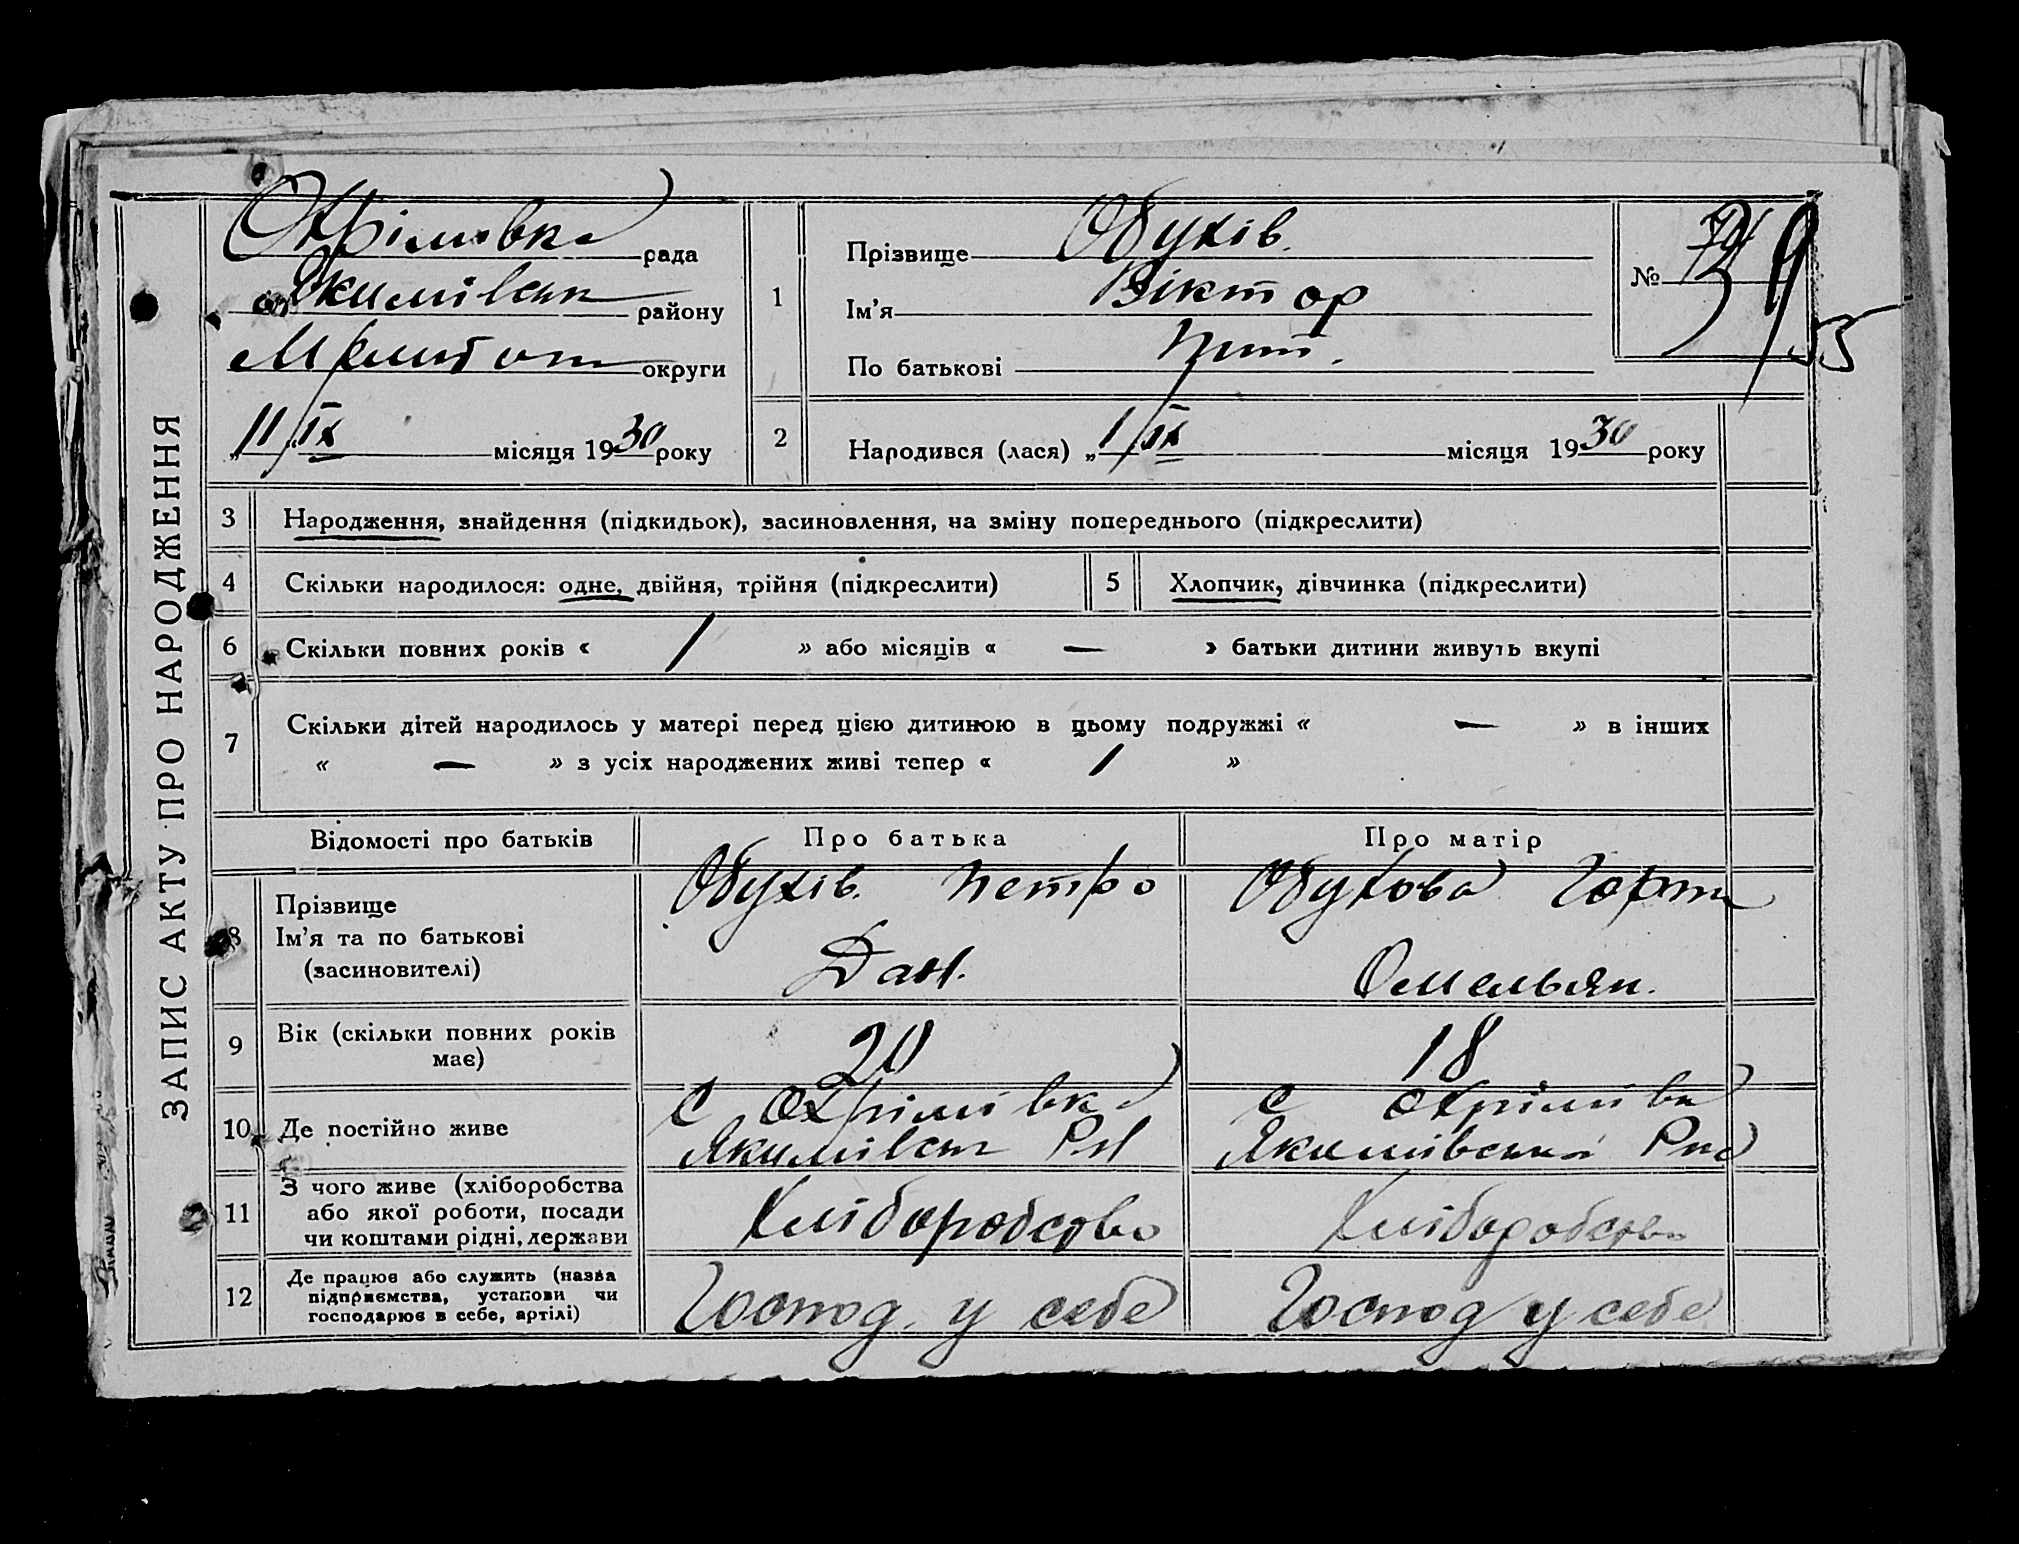 ЗАПИС АКТУ ПРО НАРОДЖЕННЯ
Охрімовка рада
Якимівськ району
Меліт округи
„11/IX місяця 1930 року
1
Прізвище Обухів.
Ім'я Віктор
По батькові Пет.
№
2
Народився (лася) „1/IX місяця 1930 року
3 Народження, знайдення (підкидьок), засиновлення, на зміну попереднього (підкреслити)
4 Скільки народилося: одне, двійня, трійня (підкреслити) 5 Хлопчик, дівчинка (підкреслити)
6 Скільки повних років « 1 » або місяців « — » батьки дитини живуть вкупі
7 Скільки дітей народилось у матері перед цією дитиною в цьому подружжі « — » в інших
« — » з усіх народжених живі тепер « 1 »
Відомості про батьків Про батька Про матір
8 Прізвище
Ім'я та по батькові
(засиновителі)
Обухів. Петро
Дан.
Обухова Горп
Омельян.
9 Вік (скільки повних років
має)
20 18
10 Де постійно живе
с Охрімівка
Якимівськ
с Охрімівка
Якимівська
11 З чого живе (хліборобства
або якої роботи, посади
чи коштами рідні, держави
Хліборобство Хліборобство
12 Де працює або служить (назва
підприємства, установи чи
господарює в себе, артілі)
Господ. у себе Господ у себе